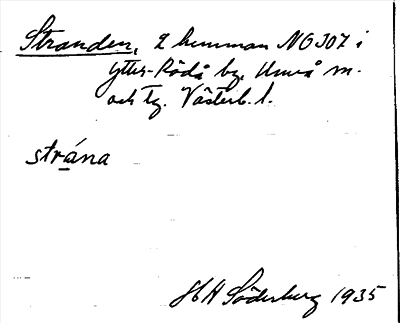 Stranden, 2 hemman NO 307 i
Ytter-Rödå by, Umeå m.
och tg. Västerb. l.
strána
H Söderberg 1935